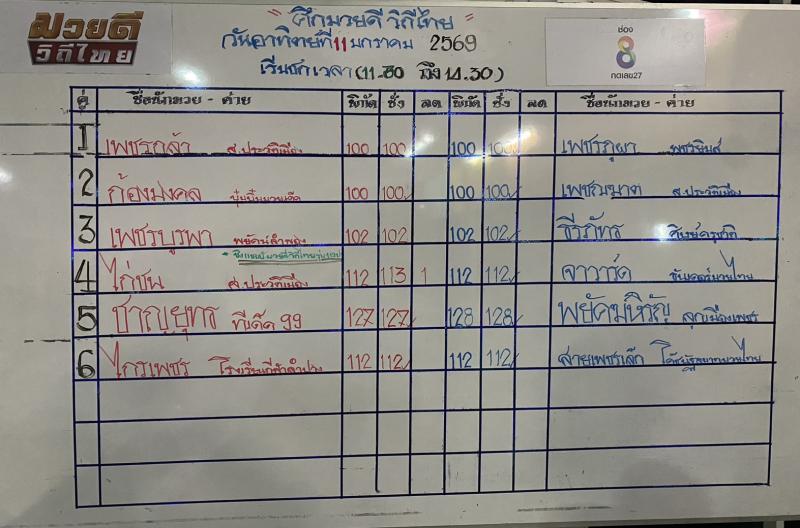 มวยดี
วิถีไทย
" ศึกมวยดี วิถีไทย "
วันอาทิตย์ที่ 11 มกราคม 2569
เริ่มชกเวลา (11.30 ถึง 14.30)
ช่อง
8
กดเลข27
คู่ ชื่อนักมวย - ค่าย พิกัด ชั่ง ลด พิกัด ชั่ง ลด ชื่อนักมวย - ค่าย
1 เพชรกล้า ส.ประวัติเมือง 100 100 100 100 เพชรภูผา
2 ก้องมงคล 100 100 100 100 ส.ประวัติเมือง
3 เพชรบูรพา พยัคฆ์ลำพอง 102 102 102 102 ธีรภัทร ศิษย์ครูชาติ
4 ไก่ชน ส.ประวัติเมือง 112 113 1 112 112 จาวาร์ด
5 ชาญยุทธ ทีเด็ด 99 127 127 128 128 พยัคฆ์หิรัญ ลูกเมืองเพชร
6 ไกรเพชร โรงเรียนกีฬาลำปาง 112 112 112 112 สายเพชรเล็ก